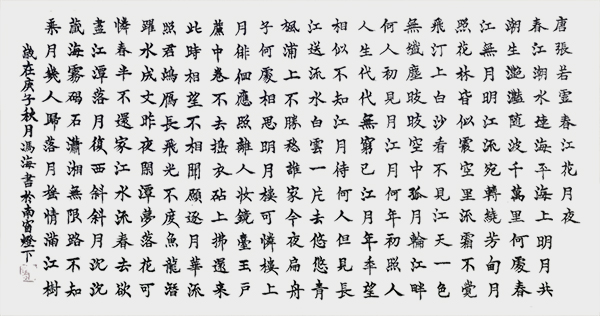 唐張若虛春江花月夜
春江潮水連海平海上明月共
潮生灩灩隨波千萬里何處春
江無月明江流宛轉繞芳甸月
照花林皆似霰空里流霜不覺
飛汀上白沙看不見江天一色
無纖塵皎皎空中孤月輪江畔
何人初見月江月何年初照人
人生代代無窮已江月年年望
相似不知江月待何人但見長
江送流水白雲一片去悠悠青
楓浦上不勝愁誰家今夜扁舟
子何處相思明月樓可憐樓上
月徘徊應照離人妝鏡臺玉戶
簾中卷不去搗衣砧上拂還來
此時相望不相聞願逐月華流
照君鴻雁長飛光不度魚龍潛
躍水成文昨夜閑潭夢落花可
憐春半不還家江水流春去欲
盡江潭落月復西斜斜月沈沈
藏海霧碣石瀟湘無限路不知
乘月幾人歸落月搖情滿江樹
歲在庚子秋月馮海書於南窗燈下